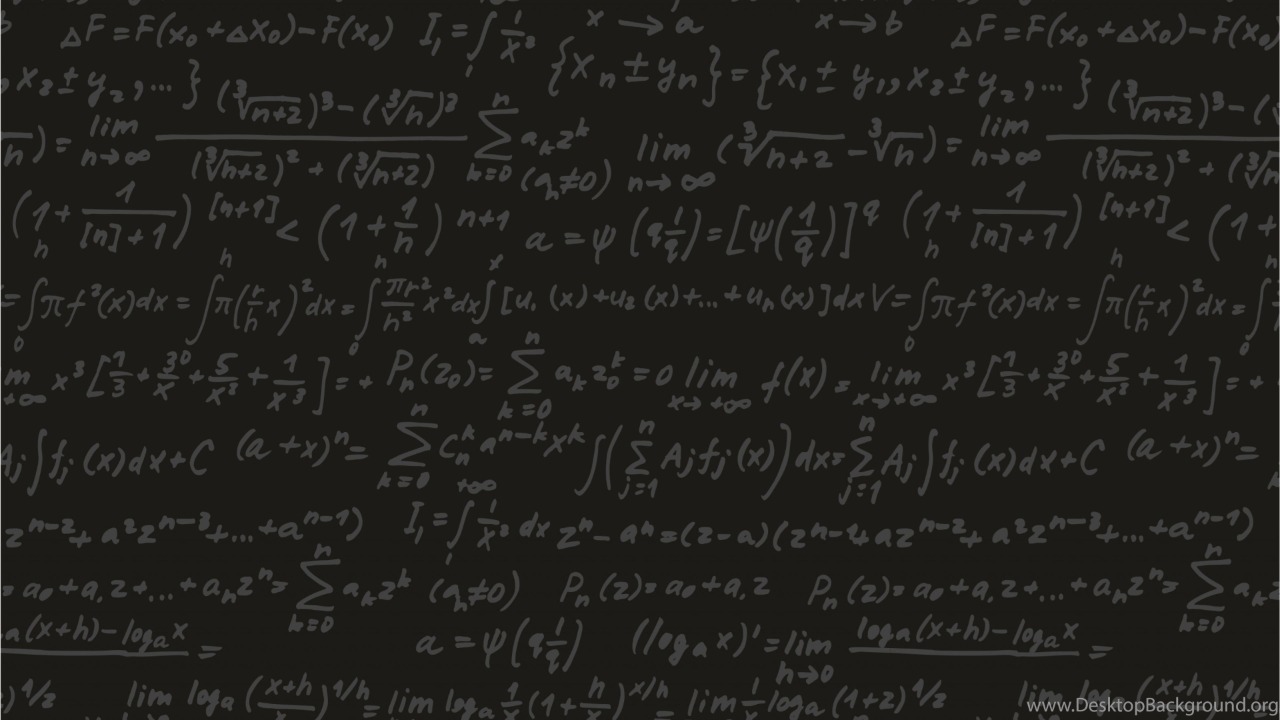 ΔF = F(x₀ + Δx₀) − F(x₀) I₁ = ∫ 1/x³ x → a x → b ΔF = F(x₀ + Δx₀) − F(x₀)
x₂ ± y₂, ... } {xₙ ± yₙ} = {x₁ ± y₁, x₂ ± y₂, ... }
n) = lim n→∞ ((∛(n+2))³ − (∛h)³) / ((∛(n+2))² + (∛(n+2)) ∑ₖ₌₀ⁿ aₖzᵏ (aₙ≠0) lim n→∞ (∛(n+2) − ∛n) = lim n→∞ (∛(n+2))³ − ( / (∛(n+2))² + (
(1 + 1/([n]+1))^[n+1] < (1 + 1/n)ⁿ⁺¹ a = ψ(q 1/q) = [ψ(1/q)]^q (1 + 1/([n]+1))^[n+1] < (1 +
= ∫₀ πf²(x)dx = ∫ʰ π(r/h x)²dx = ∫₀ⁿ πr²/h² x²dx ∫ₐˣ [u₁(x)+u₂(x)+...+uₙ(x)]dx V = ∫₀ πf²(x)dx = ∫₀ʰ π(r/h x)²dx = ∫
m +∞ x³[7/3 + 3⁰/x + 5/x² + 1/x³] = + Pₙ(z₀) = ∑ₖ₌₀ⁿ aₖz₀ᵏ = 0 lim x→+∞ f(x) = lim x→+∞ x³[7/3 + 3⁰/x + 5/x² + 1/x³] = +
Aⱼ∫fⱼ(x)dx+C (a+x)ⁿ = ∑ₖ₌₀ⁿ Cₙᵏaⁿ⁻ᵏxᵏ +∞ ∫(∑ⱼ₌₁ⁿ Aⱼfⱼ(x))dx = ∑ⱼ₌₁ⁿ Aⱼ∫fⱼ(x)dx+C (a+x)ⁿ =
zⁿ⁻² + a²zⁿ⁻³ + ... + aⁿ⁻¹) I₁ = ∫₁ 1/x³ dx zⁿ − aⁿ = (z−a)(zⁿ⁻¹ + azⁿ⁻² + a²zⁿ⁻³ + ... + aⁿ⁻¹)
= a₀ + a₁z + ... + aₙzⁿ = ∑ₖ₌₀ⁿ aₖzᵏ (aₙ≠0) Pₙ(z) = a₀ + a₁z Pₙ(z) = a₀ + a₁z + ... + aₙzⁿ = ∑ₖ₌₀ⁿ aₖz
a(x+h) − logₐx = a = ψ(q 1/q) (logₐx)' = lim h→0 logₐ(x+h) − logₐx =
)^1/2 lim logₐ((x+h)/x)^1/h = lim logₐ 1/x (1 + h/x)^x/h = lim 1/x logₐ(1+z)^1/2 lim logₐ((x+h)/x)^1/h
www.DesktopBackground.org